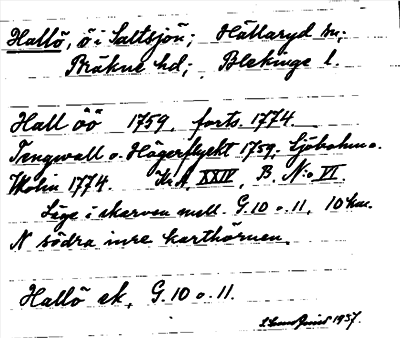 Hallö, ö i Saltsjön; Hällaryd sn;
Bräkne hd; Blekinge l.
Hall öö 1759, forts. 1774.
Tengwall o. Hägerflyckt 1759; Sjöbohm o.
Wolin 1774. Kr A, XXIV, B, N:o VI.
Läge i skarven mell. G.10 o. 11, 10 km.
N södra inre karthörnen.
Hallö ek, G.10 o. 11.
1937.